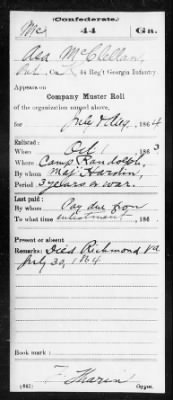 (Confederate.)
Mc 44 Ga.
Asa McClellan
Co. 44 Reg't Georgia Infantry.
Appears on
Company Muster Roll
of the organization named above,
for July & Aug, 1864
Enlisted:
When Oct 1 1863
Where Camp Randolph,
By whom Maj. Hardin,
Period 3 years or war.
Last paid:
By whom Pay due from
To what time enlistment, 186 .
Present or absent
Remarks: Died Richmond Va
July 30, 1864
Book mark:
(642) Copyist.